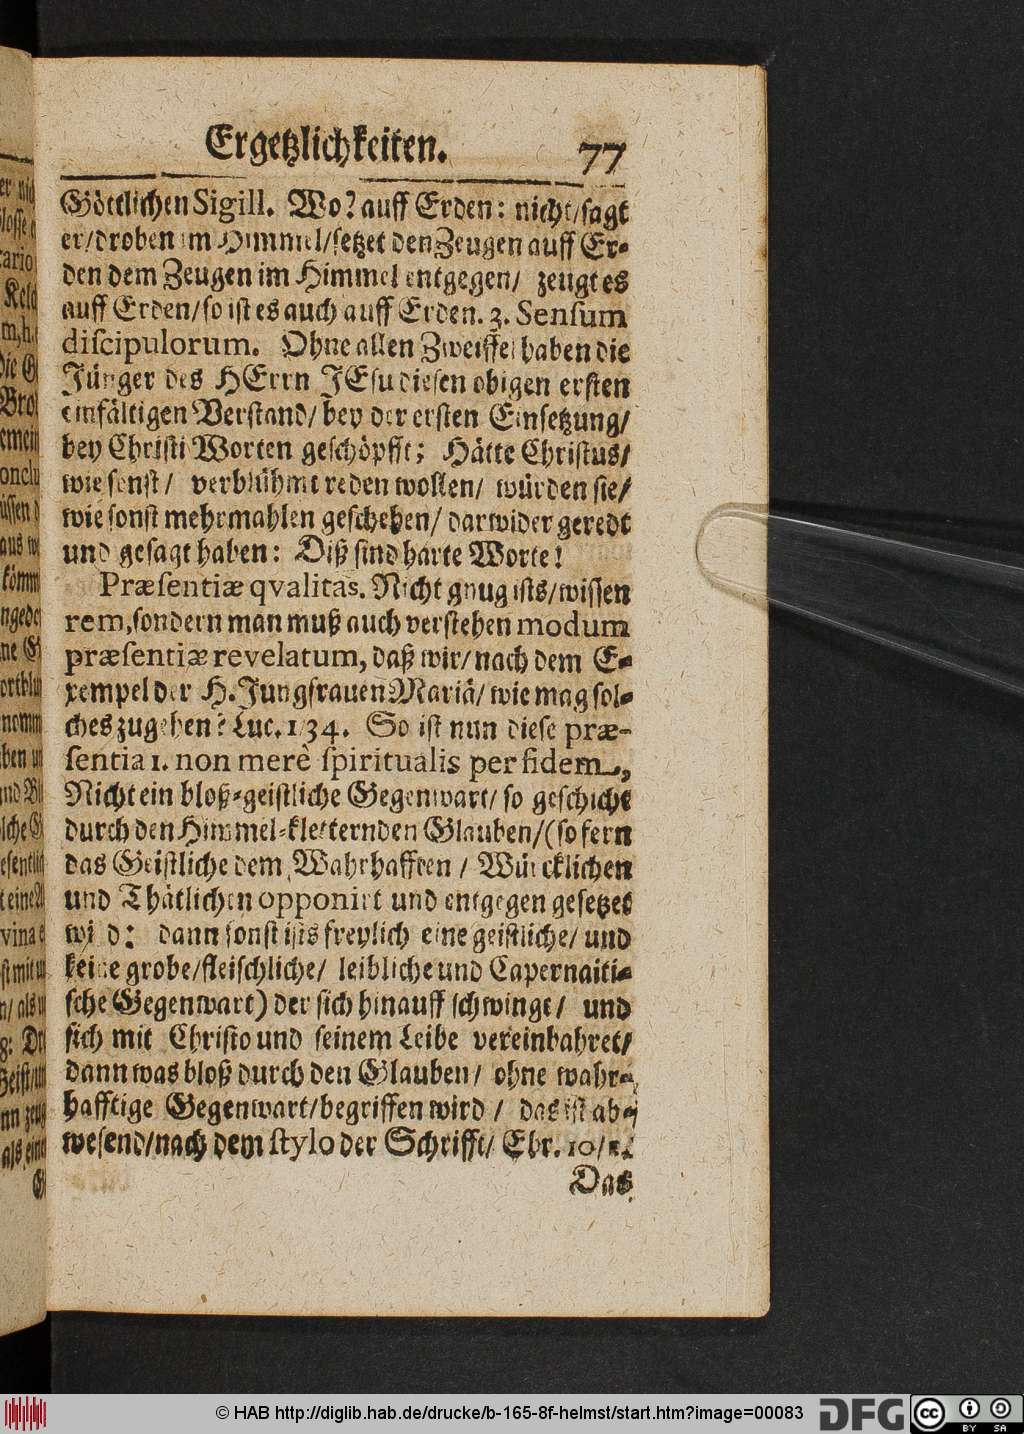 Ergetzlichkeiten. 77
Göttlichen Sigill. Wo? auff Erden: nicht/sagt
er/droben im Himmel/setzet den Zeugen auff Er-
den dem Zeugen im Himmel entgegen/ zeugt es
auff Erden/so ist es auch auff Erden. 3. Sensum
discipulorum. Ohne allen Zweiffel haben die
Jünger des HErrn JEsu diesen obigen ersten
einfältigen Verstand/ bey der ersten Einsetzung/
bey Christi Worten geschöpfft; Hätte Christus/
wie sonst/ verblühmt reden wollen/ würden sie/
wie sonst mehrmahlen geschehen/ darwider geredt
und gesagt haben: Diß sind harte Worte!
Præsentiæ qvalitas. Nicht gnug ists/wissen
rem, sondern man muß auch verstehen modum
præsentiæ revelatum, daß wir/ nach dem E-
xempel der H. Jungfrauen Mariä/ wie mag sol-
ches zugehen? Luc. 1 34. So ist nun diese præ-
sentia 1. non merè spiritualis per fidem,
Nicht ein bloß-geistliche Gegenwart/ so geschicht
durch den Himmel-kletternden Glauben/(so fern
das Geistliche dem Wahrhafften/ Würcklichen
und Thätlichen opponirt und entgegen gesetzet
wird: dann sonst ists freylich eine geistliche/ und
keine grobe/fleischliche/ leibliche und Capernaiti-
sche Gegenwart) der sich hinauff schwingt/ und
sich mit Christo und seinem Leibe vereinbahret/
dann was bloß durch den Glauben/ ohne wahr-
hafftige Gegenwart/begriffen wird/ das ist ab-
wesend/nach dem stylo der Schrifft/ Ebr. 10/
Das
© HAB http://diglib.hab.de/drucke/b-165-8f-helmst/start.htm?image=00083
DFG
cc
BY SA